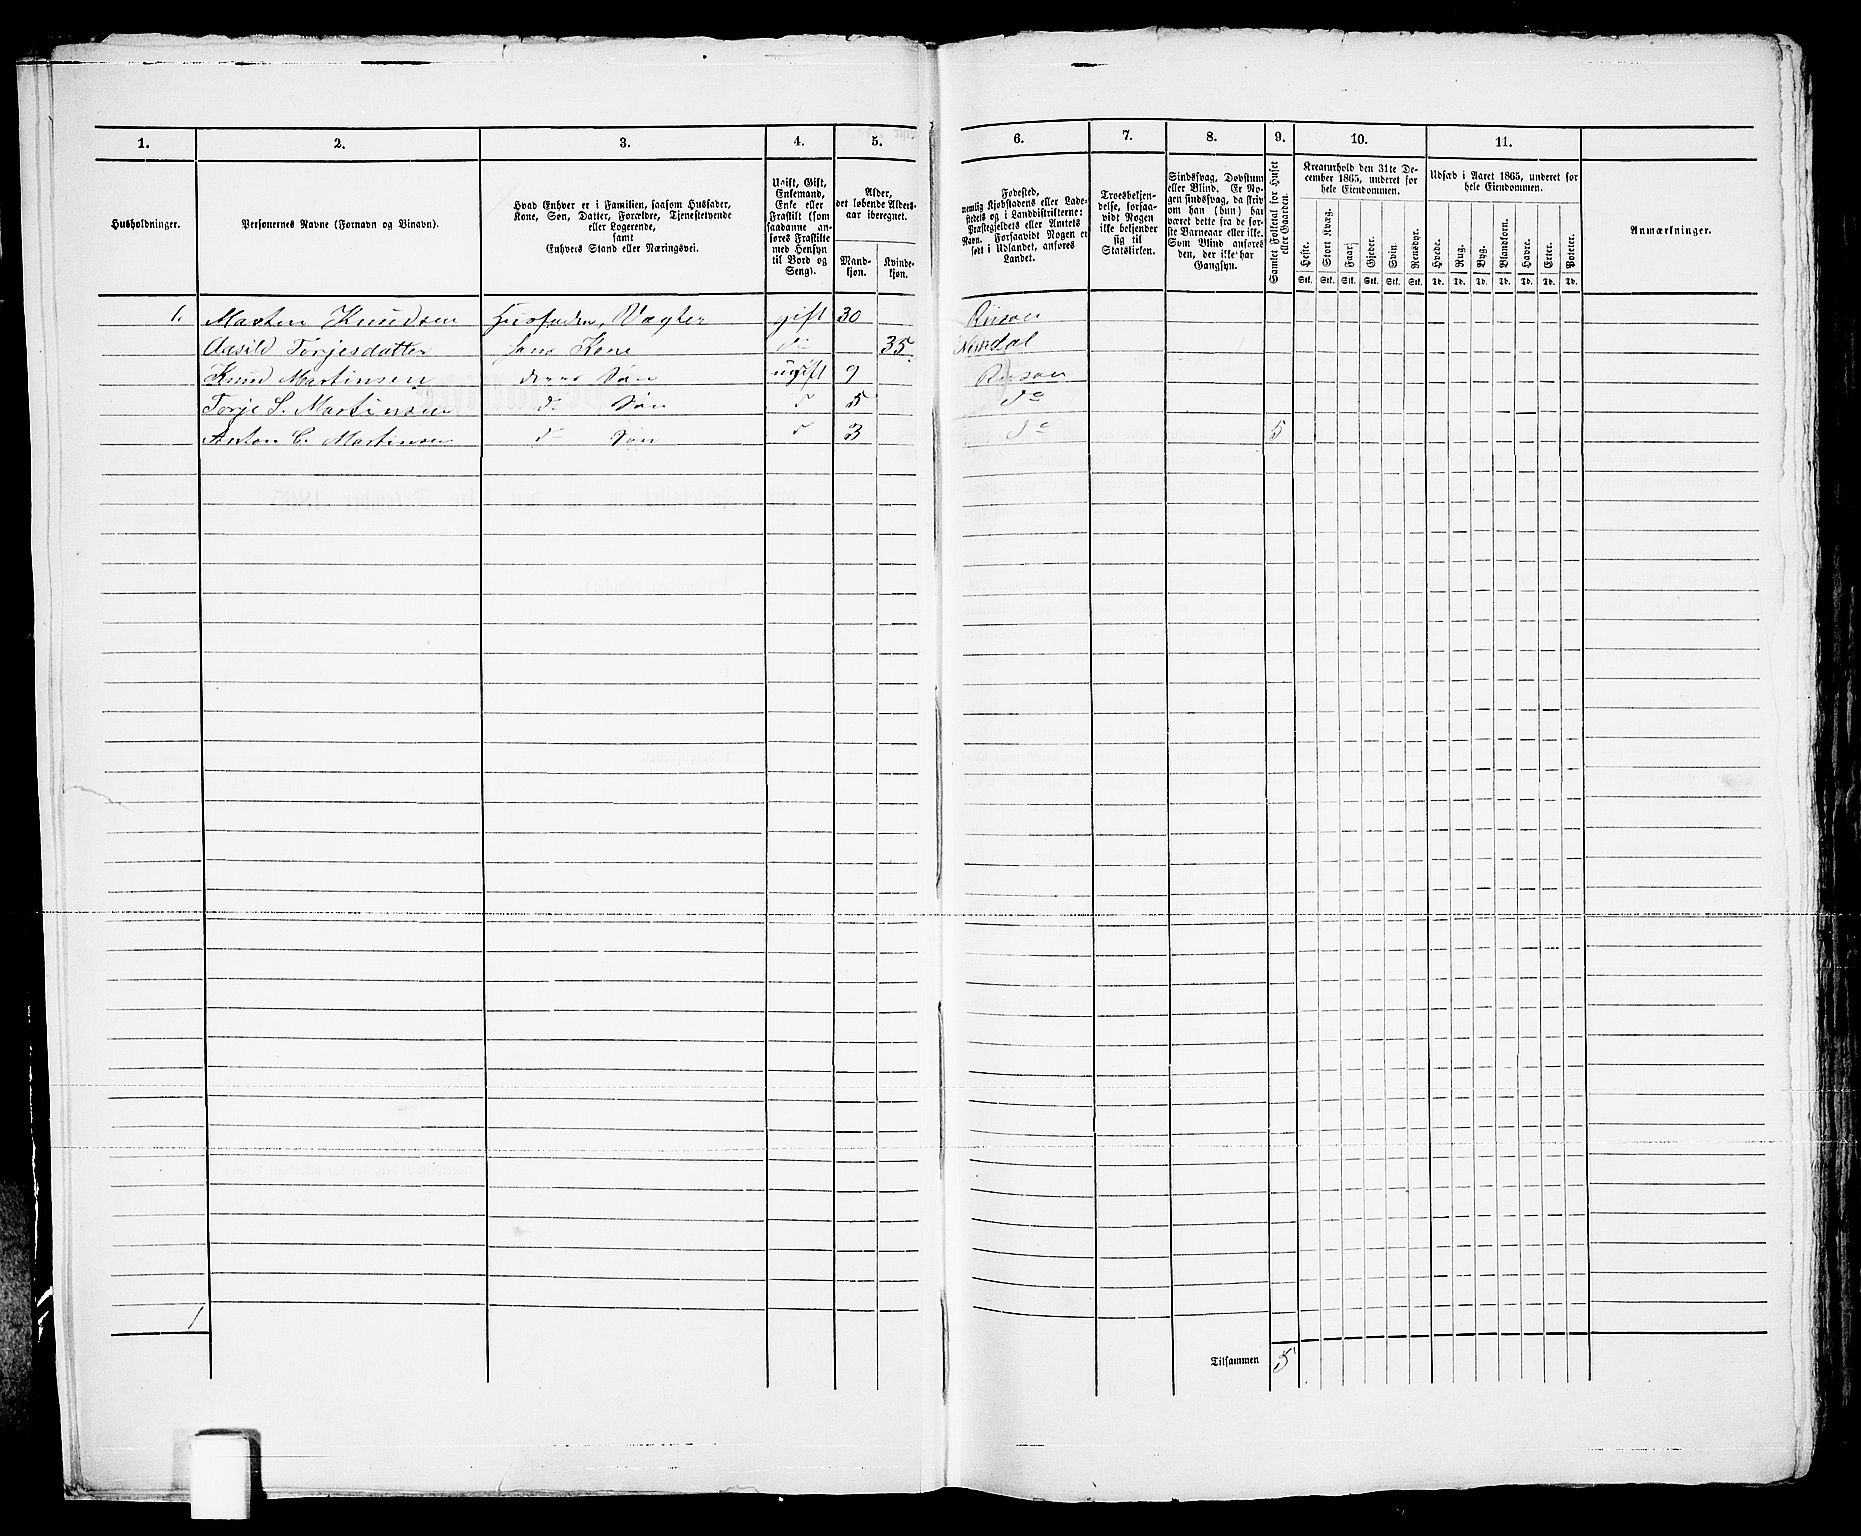 1. 2. 3. 4. 5. 6. 7. 8. 9. 10. 11.
Husholdninger.
Personernes Navne (Fornavn og Tilnavn).
Hvad Enhver er i Familien, saasom Husfader,
Kone, Søn, Datter, Forældre, Tjenestetyende
eller Logerende,
samt
Enhvers Stand eller Næringsvei.
Ugift, Gift,
Enkemand,
Enke eller
Fraskilt (som
saadanne an-
føres Fraskilte
med Hensyn
til Bord og
Seng).
Alder,
det løbende Alders-
aar iberegnet.
Mand-
kjøn.
Kvinde-
kjøn.
Fødested,
nemlig Kjøbstadens eller Lade-
stedets og i Landdistrikterne:
Præstegjeldets eller Amtets
Navn. Forsaavidt Nogen er
født i Udlandet, anføres
Landet.
Troesbekjen-
delse, forsaa-
vidt Nogen
ikke bekjender
sig til
Statskirken.
Sindssvag, Døvstum
eller Blind. Er No-
gen sindssvag, da skriv
om han (hun) har
været dette fra de før-
ste Barneaar eller ikke.
Som Blind anføres
den, der ikke har
Gangsyn.
Samlet Folketal for Huset
eller Gaarden.
Kreaturhold den 31te De-
cember 1865, underet for
hele Eiendommen.
Heste. Stort Kvæg. Faar. Gjeder. Svin. Rensdyr.
Stk. Stk. Stk. Stk. Stk. Stk.
Udsæd i Aaret 1865, underet for
hele Eiendommen.
Hvede. Rug. Byg. Blandkorn. Havre. Erter. Poteter.
Td. Td. Td. Td. Td. Td. Td.
Anmærkninger.
1. Martin Knudsen Husfader, Vægter gift 30 Risøer
Aasild Torjesdatter hans Kone do 35
Knud Martinsen deres Søn ugift 9 Risøer
Torje S. Martinsen d. Søn 5 do
Anton C. Martinsen d. Søn 3 do 5
1
Tilsammen 5